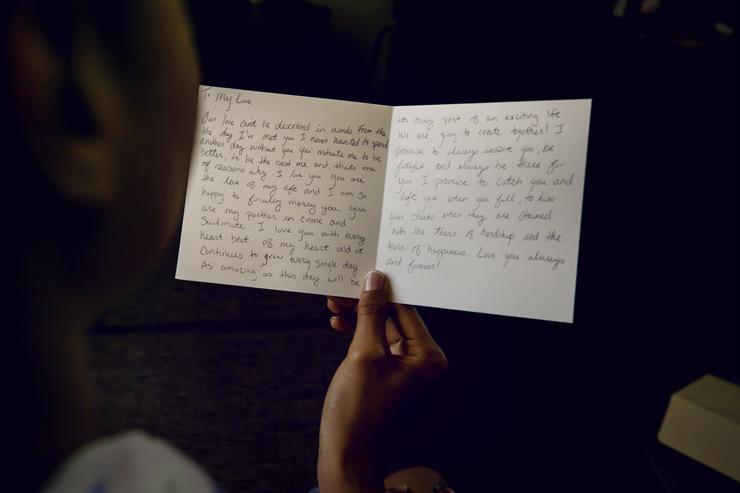 To My Love,
Our love cant be described in words From the
the day I've met you I never wanted to spend
another day without you you motivate me to be
better, to be the best me and thats one
of reasons why I love you you are
the love of my life and I am so
happy to finally marry you. You
are my partner in crime and
Soulmate. I love you with every
heart beat of my heart and it
Continues to grow every single day
As amazing as this day will be
its only part of an exciting life
we are going to create together! I
promise to always inspire you, be
faithful and always be there for
you I promise to catch you and
lift you when you fall, to kiss
your cheeks when they are stained
with the tears of hardship and the
tears of happiness. Love you always
and forever!